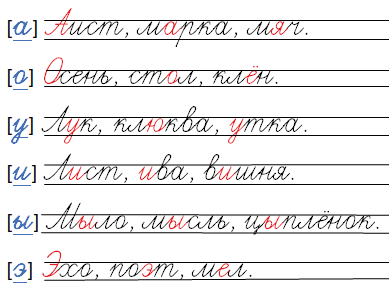 [а] Аист, марка, мяч.
[о] Осень, стол, клён.
[у] Лук, клюква, утка.
[и] Лист, ива, вишня.
[ы] Мыло, мысль, цыплёнок.
[э] Эхо, поэт, мел.